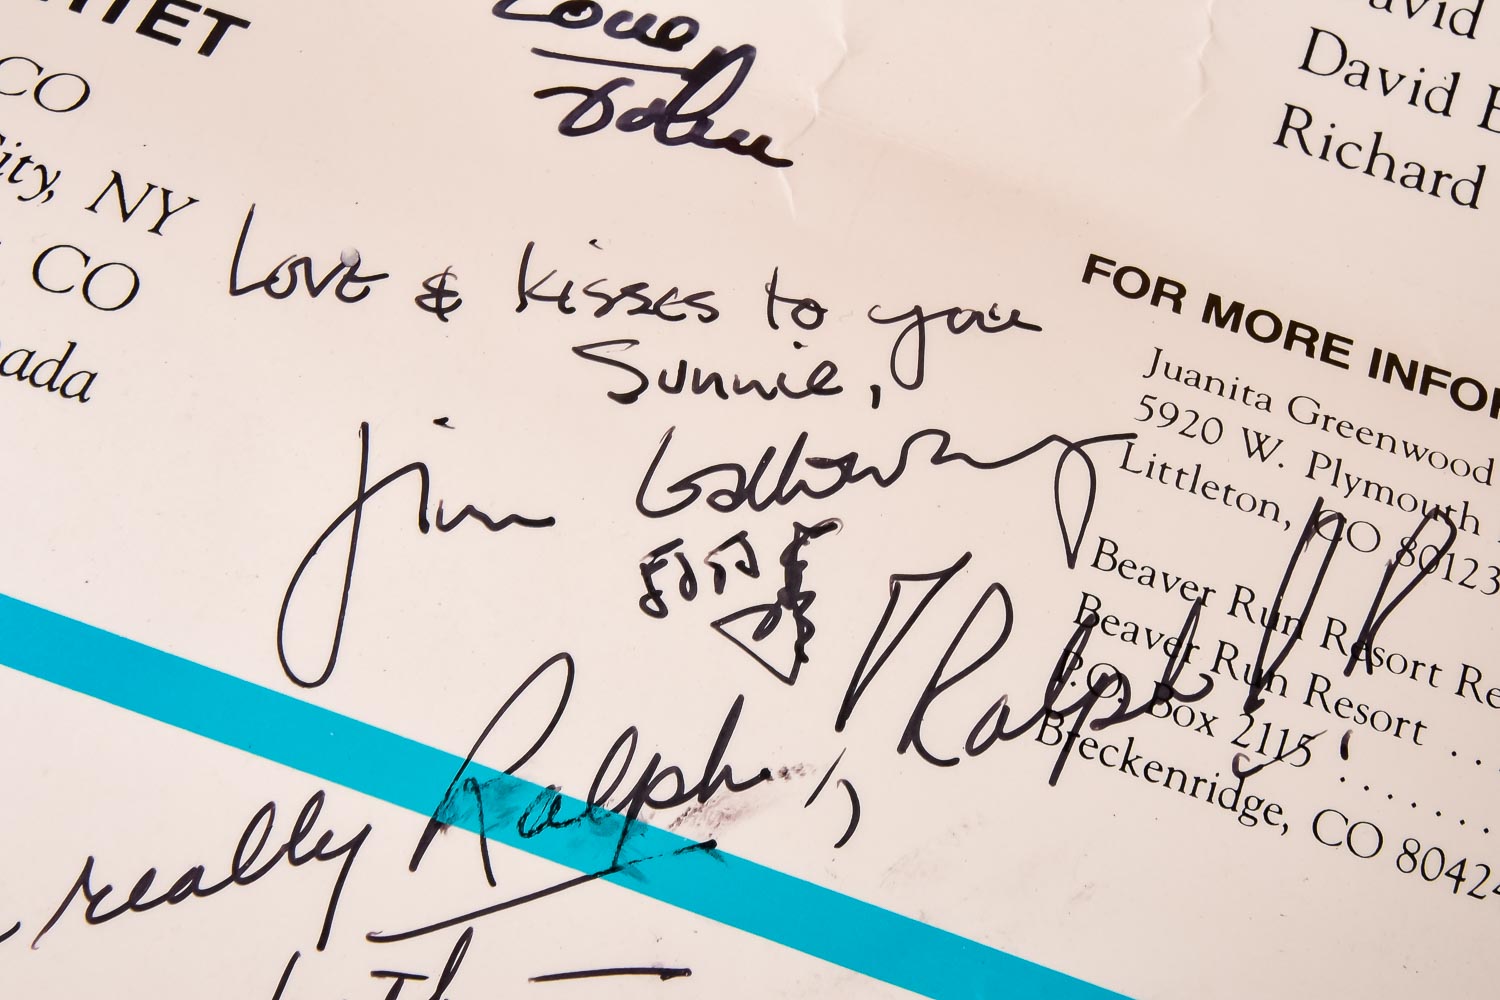 TET
CO
ity, NY
CO
ada
Love
John
David
Richard
Love & kisses to you
Sunnie,
Jim Galloway
FOR MORE INFOR
Juanita Greenwood
5920 W. Plymouth
Littleton, CO 80123
Beaver Run Resort Re
Beaver Run Resort . .
P.O. Box 2115 . . . . . .
Breckenridge, CO 8042
Ralph!
really Ralph!